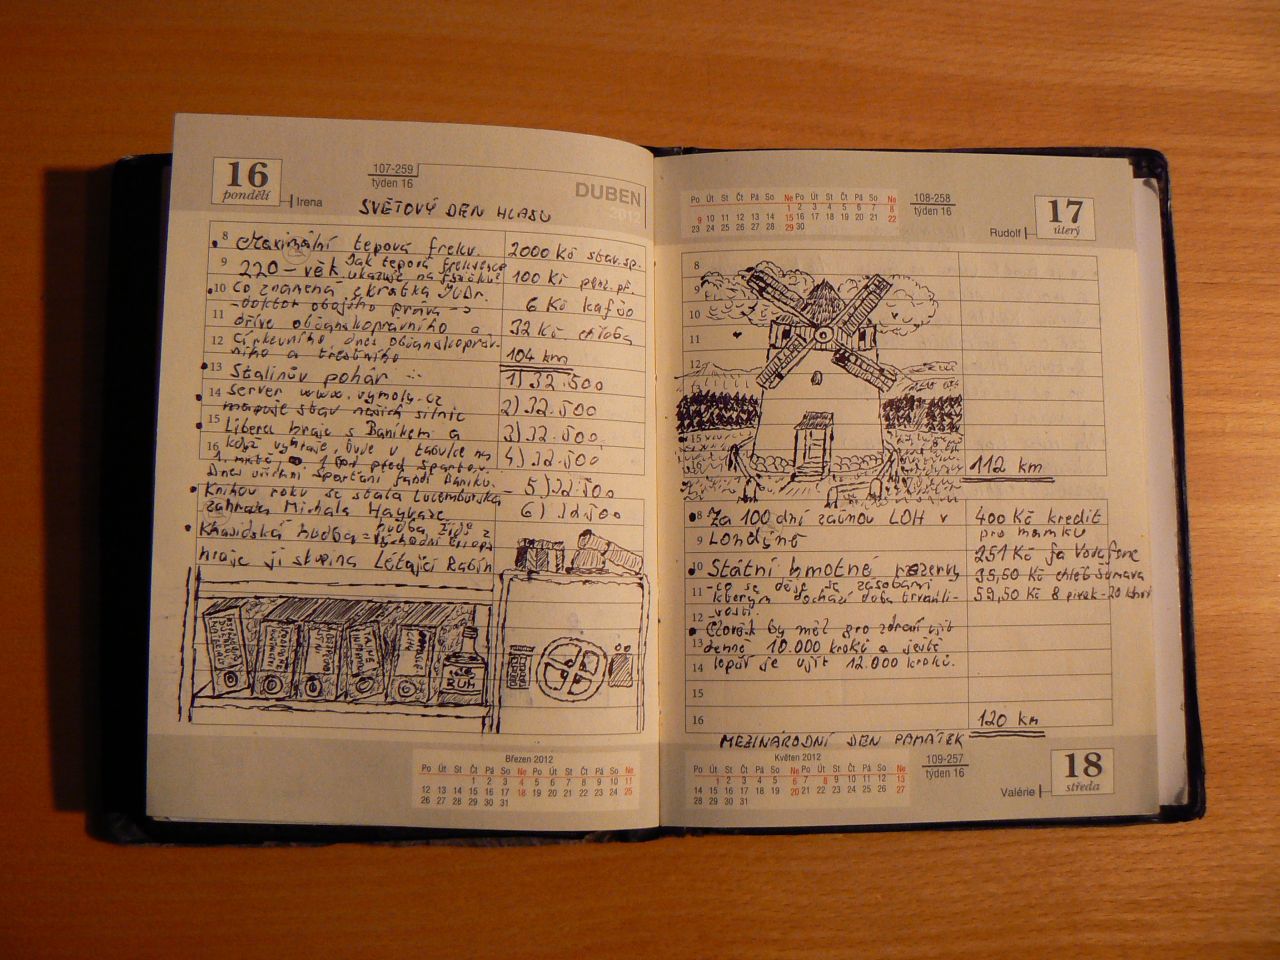 16
pondělí
Irena
107-259
týden 16
DUBEN
2012
SVĚTOVÝ DEN HLASU
8 Maximální tepová frekv.
9 220 - věk. Jak tepová frekvence
ukazuje na
10 Co znamená zkratka JUDr.
- doktor obojího práva ->
11 dříve občanskoprávního a
12 církevního dnes občanskopráv-
ního a trestního
13 Stalinův pohár
14 server www.vymoly.cz
mapuje stav našich silnic
15 Liberec hraje s Baníkem a
16 když vyhraje, bude v tabulce na
1. místě 1 bod před Spartou.
Dnes sparťani fandí Baníku.
Knihou roku se stala Lucemburská
zahrada Michala
Khasidská hudba = hudba židů z
východní
hraje ji skupina Létající Rabín
2000 Kč stav. sp.
100 Kč penz. př.
6 Kč kafíčo
32 Kč chleba
104 km
1) 32.500
2) 32.500
3) 32.500
4) 32.500
5) 32.500
6) 32.500
RUM
Březen 2012
Po Út St Čt Pá So Ne Po Út St Čt Pá So Ne
1 2 3 4 5 6 7 8 9 10 11
12 13 14 15 16 17 18 19 20 21 22 23 24 25
26 27 28 29 30 31
Po Út St Čt Pá So Ne Po Út St Čt Pá So Ne
1 2 3 4 5 6 7 8
9 10 11 12 13 14 15 16 17 18 19 20 21 22
23 24 25 26 27 28 29 30
108-258
týden 16
Rudolf
17
úterý
8
9
10
11
12
15
112 km
8 Za 100 dní začnou LOH v
9 Londýně
10 Státní hmotné rezervy
11 - co se děje se zásobami
kterým dochází doba trvanli-
12 vosti.
Člověk by měl pro zdraví ujít
13 denně 10.000 kroků a ještě
14 lepší je ujít 12.000 kroků.
15
16
400 Kč kredit
pro mamku
251 Kč fa Vodafone
35,50 Kč chleb Šumava
59,50 Kč 8 pivek
120 km
MEZINÁRODNÍ DEN PAMÁTEK
Květen 2012
Po Út St Čt Pá So Ne Po Út St Čt Pá So Ne
1 2 3 4 5 6 7 8 9 10 11 12 13
14 15 16 17 18 19 20 21 22 23 24 25 26 27
28 29 30 31
109-257
týden 16
Valérie
18
středa